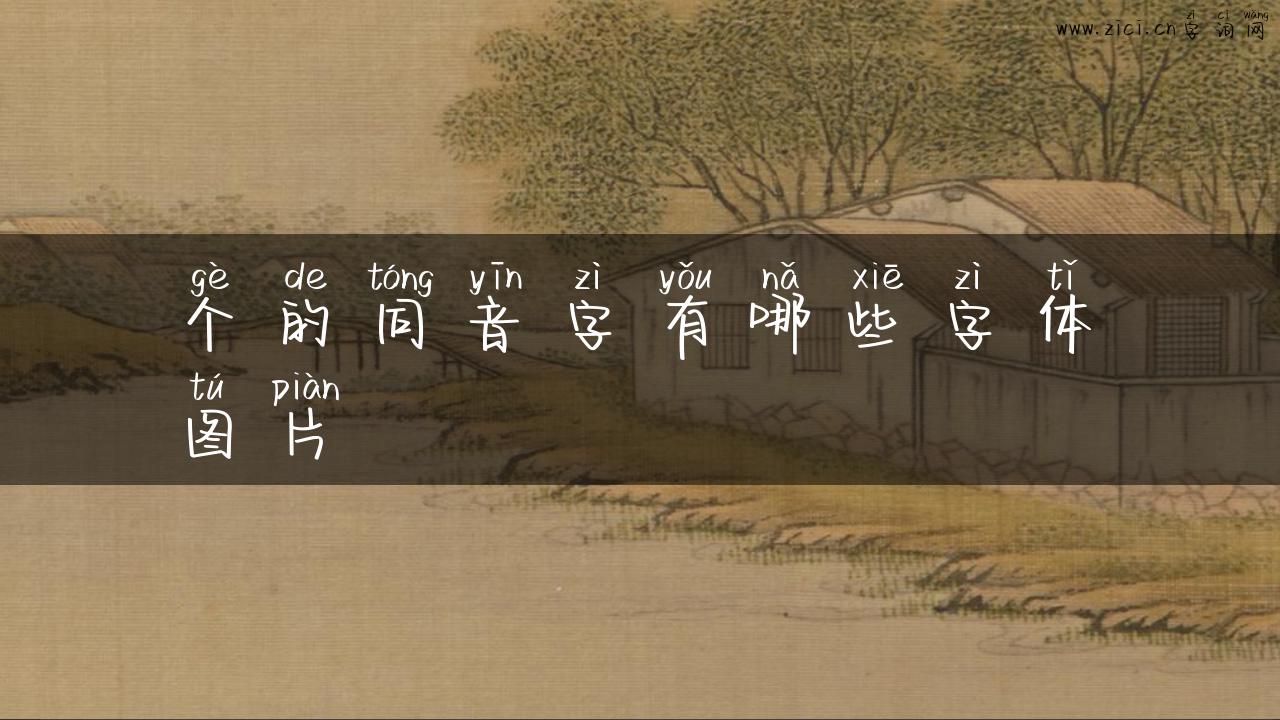 zì cí wǎng
www.zici.cn字词网
gè de tóng yīn zì yǒu nǎ xiē zì tǐ
个的同音字有哪些字体
tú piàn
图片